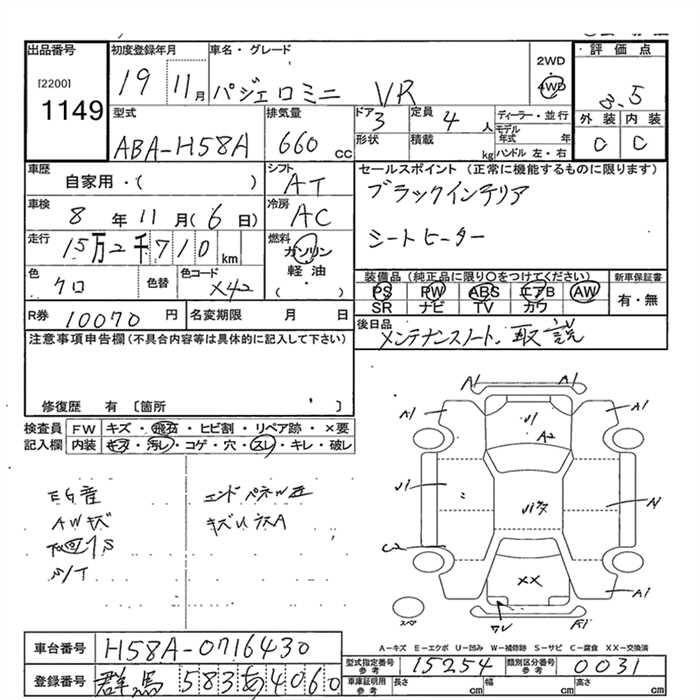 出品番号 初度登録年月 車名・グレード 評価点
[2200] 19 11月 パジェロミニ VR 2WD 4WD 3.5
1149 型式 排気量 ドア 3 定員 4人 ディーラー・並行 外装 内装
ABA-H58A 660cc 形状 積載 kg モデル年式 年 C C
ハンドル 左・右
車歴 自家用・( ) シフト AT セールスポイント (正常に機能するものに限ります)
車検 8年11月(6日) 冷房 AC ブラックインテリア
走行 15万2千710km 燃料 ガソリン シートヒーター
軽油
( )
色 クロ 色替 色コード X42 装備品(純正品に限り○をつけてください) 新車保証書
PS PW ABS エアB AW 有・無
SR ナビ TV カワ
R券 10070円 名変期限 月 日 後日品 メンテナンスノート、取説
注意事項申告欄(不具合内容等は具体的に記入して下さい)
修復歴 有 〔箇所 〕
検査員 FW キズ・飛石・ヒビ割・リペア跡・×要
記入欄 内装 キズ・汚レ・コゲ・穴・スレ・キレ・破レ
EG音 エンドパネル
AWキズ
S/T
A1 A1
A1 A1
A2
C2
XX
A1
スペ
A-キズ E-エクボ U-凹み W-補修跡 S-サビ C-腐食 XX-交換済
車台番号 H58A-0716430
型式指定番号 参考 15254 類別区分番号 参考 0031
登録番号 群馬 583 あ 4060
車庫証明用 参考 長さ cm 幅 cm 高さ cm